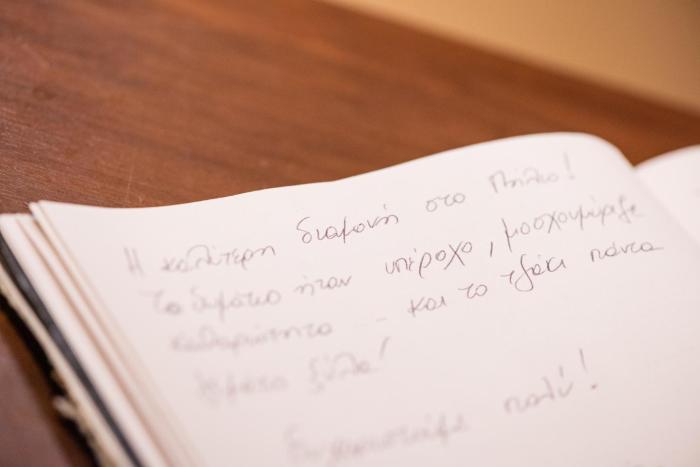 Η καλύτερη διαμονή στο Πήλιο!
Το δωμάτιο ήταν υπέροχο, μοσχομύριζε
καθαριότητα - και το τζάκι πάντα
γεμάτο ξύλα!
Ευχαριστούμε πολύ!